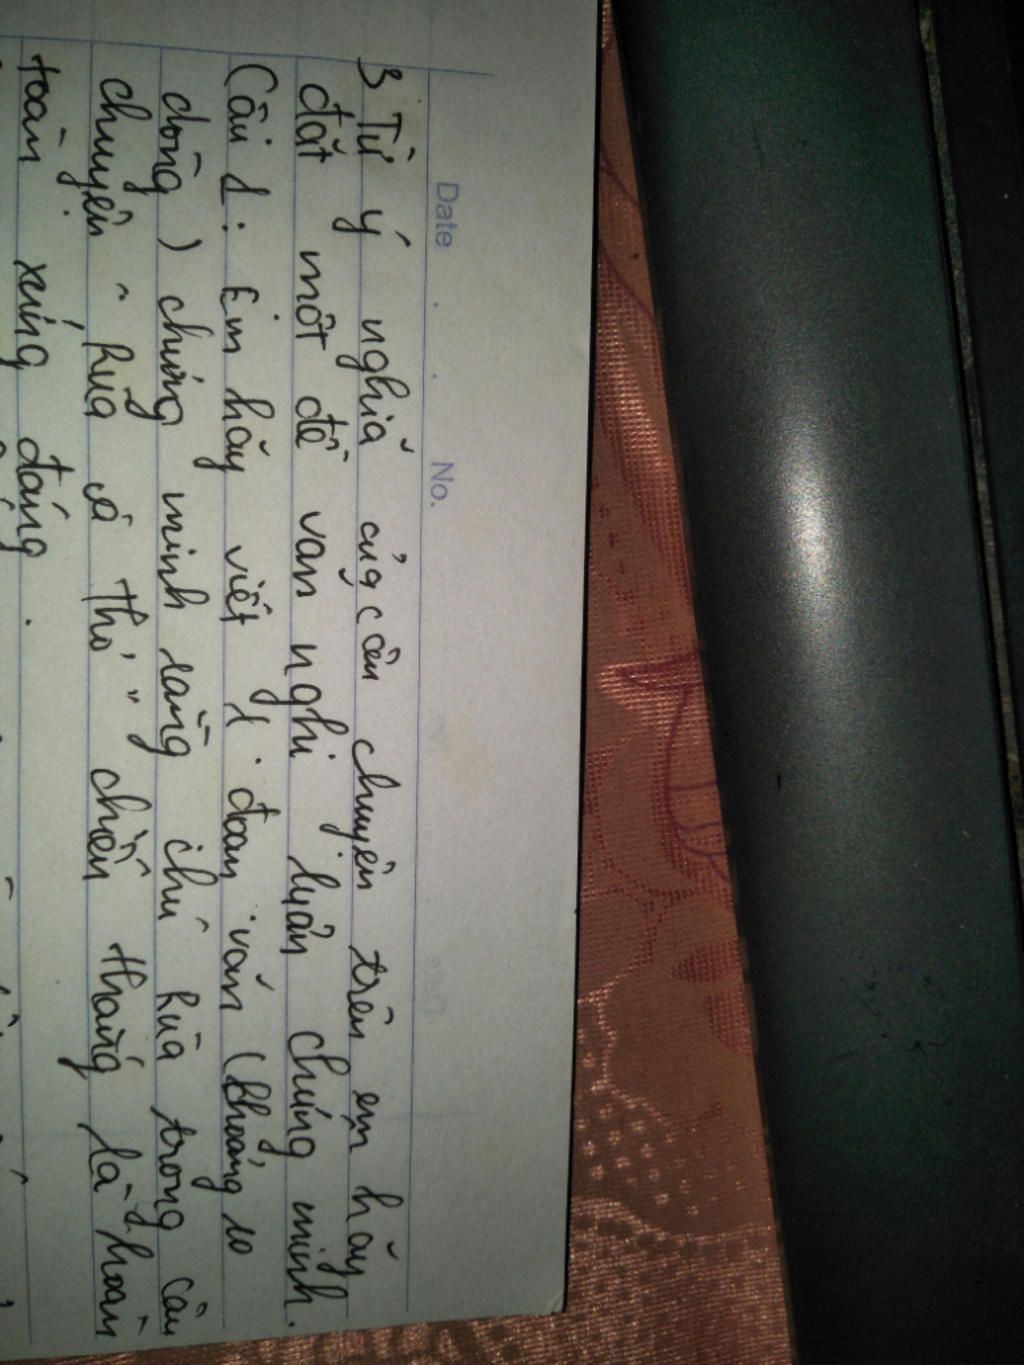 Date No.
3 Từ ý nghĩa của câu chuyện trên em hãy
đặt một đề văn nghị luận chứng minh.
Câu 1: Em hãy viết 1 đoạn văn (khoảng 10
dòng) chứng minh rằng chú Rùa trong câu
chuyện " Rùa và Thỏ " chiến thắng là hoàn
toàn xứng đáng.